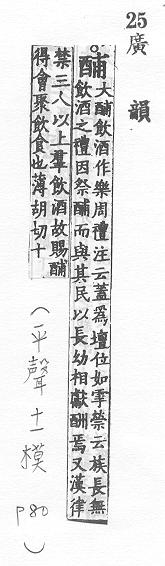 25
廣韻
酺
大酺飲酒作樂周禮注云蓋爲壇位如雩禜云族長無
飲酒之禮因祭酺而與其民以長幼相獻酬焉又漢律
禁三人以上羣飲酒故賜酺
得會聚飲食也薄胡切十
(平聲十一模 p80)